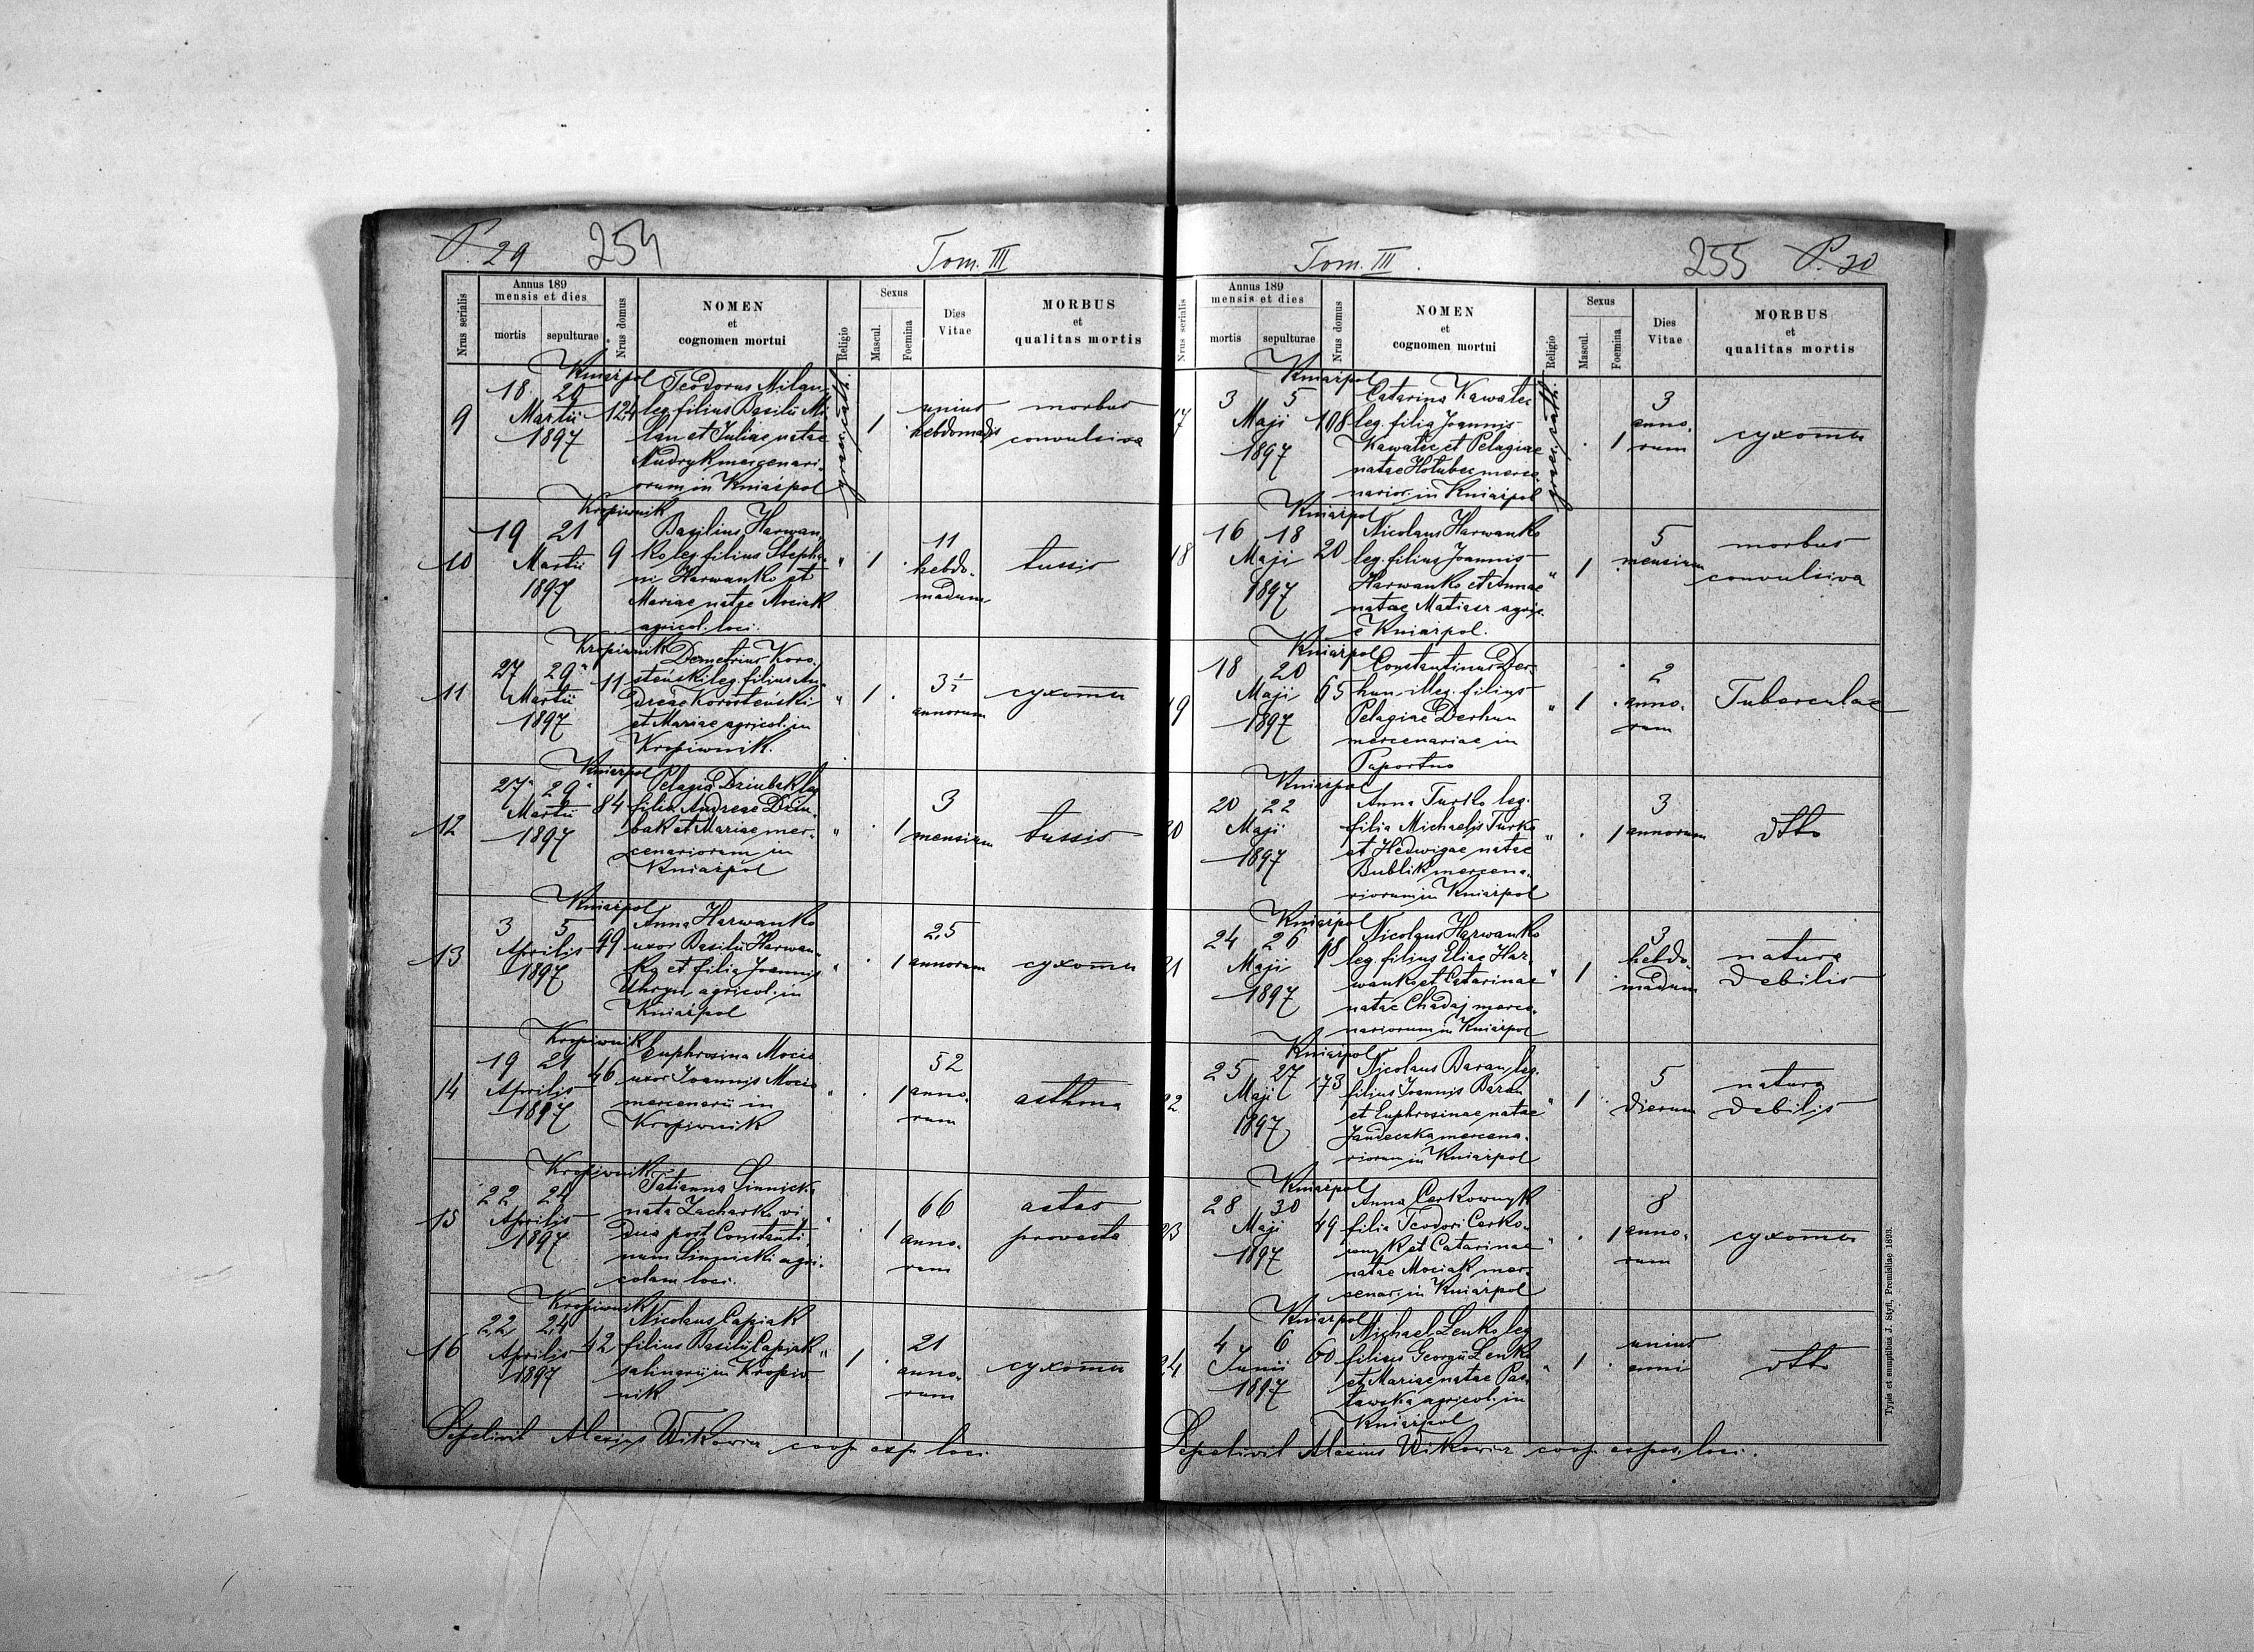 P. 29 254 Tom. III
Nrus serialis
Annus 189
mensis et dies
mortis
sepulturae
Nrus domus
NOMEN
et
cognomen mortui
Religio
Sexus
Mascul.
Foemina
Dies
Vitae
MORBUS
et
qualitas mortis
Kniażpol
9 18 20 Martii 1897 124
Teodorus Milan
leg. filius Basilii Mi
lan et Juliae natae
Mudryk mercenari-
orum in Kniażpol
graec. cath.
1
unius
hebdomadis
morbus
convulsiva
Kropiwnik
10 19 21 Martii 1897 9
Basilius Harwan
ko leg. filius Stepha
ni Harwanko et
Mariae natae Mociak
agricol. loci.
" 1
11
hebdo-
madum
tussis
Kropiwnik
11 27 29 Martii 1897 11
Demetrius Koro
steński leg. filius An
dreae Korosteński
et Mariae agricol. in
Kropiwnik.
" 1
3½
annorum
сухоти
Kniażpol
12 27 29 Martii 1897 84
Pelagia Dziubak leg
filia Andreae Dziu-
bak et Mariae mer-
cenariorum in
Kniażpol
" 1
3
mensium
tussis
Kniażpol
13 3 5 Aprilis 1897 49
Anna Harwanko
uxor Basilii Harwan-
ko et filia Joannis
Uhryn agricol. in
Kniażpol
" 1
25
annorum
сухоти
Kropiwnik
14 19 21 Aprilis 1897 46
Euphrosina Mocia
uxor Joannis Mocia
mercenarii in
Kropiwnik
" 1
52
anno-
rum
asthma
Kropiwnik
15 22 24 Aprilis 1897
Tatianna Sinnicka
nata Zacharko vi
dua post Constanti
num Sinnicki agri-
colam loci.
" 1
66
anno-
rum
aetas
provecta
Kropiwnik
16 22 24 Aprilis 1897 42
Nicolaus Capiak
filius Basilii Capiak
salinarii in Kropiw
nik
" 1
21
anno-
rum
сухоти
Sepelivit Alexius Witkowicz coop. exp. loci.
Tom. III. 255 P. 30
Nrus serialis
Annus 189
mensis et dies
mortis
sepulturae
Nrus domus
NOMEN
et
cognomen mortui
Religio
Sexus
Mascul.
Foemina
Dies
Vitae
MORBUS
et
qualitas mortis
Kniażpol
17 3 5 Maji 1897 108
Catarina Kawatec
leg. filia Joannis
Kawatec et Pelagiae
natae Hołubec merce-
narior. in Kniażpol
graec. cath.
1
3
anno-
rum
сухоти
Kniażpol
18 16 18 Maji 1897 20
Nicolaus Harwanko
leg. filius Joannis
Harwanko et Annae
natae Matiasz agric.
e Kniażpol.
" 1
5
mensium
morbus
convulsiva
Kniażpol
19 18 20 Maji 1897 65
Constantinus Der-
hun illeg. filius
Pelagiae Derhun
mercenariae in
Paportno
" 1
2
anno-
rum
Tuberculae
Kniażpol
20 20 22 Maji 1897
Anna Turko leg.
filia Michaelis Turko
et Hedwigae natae
Bublik mercena-
riorum in Kniażpol
" 1
3
annorum
dtto
Kniażpol
21 24 26 Maji 1897 98
Nicolaus Harwanko
leg. filius Eliae Har-
wanko et Catarinae
natae Chadaj merce-
nariorum in Kniażpol
" 1
3
hebdo-
madum
natura
debilis
Kniażpol
22 25 27 Maji 1897 173
Nicolaus Baran leg.
filius Joannis Baran
et Euphrosinae natae
mercena-
riorum in Kniażpol
" 1
5
dierum
natura
debilis
Kniażpol
23 28 30 Maji 1897 49
Anna Cerkownyk
filia Teodori Cerko-
wnyk et Catarinae
natae Mociak mer-
cenar. in Kniażpol
" 1
8
anno-
rum
сухоти
Kniażpol
24 4 6 Junii 1897 60
Michael Lenko leg
filius Georgii Lenko
et Mariae natae Pas
ławska agricol. in
Kniażpol
" 1
unius
anni
dtto
Sepelivit Alexius Witkowicz coop. expos. loci.
Typis et sumptibus J. Styfi, Premisliae 1893.